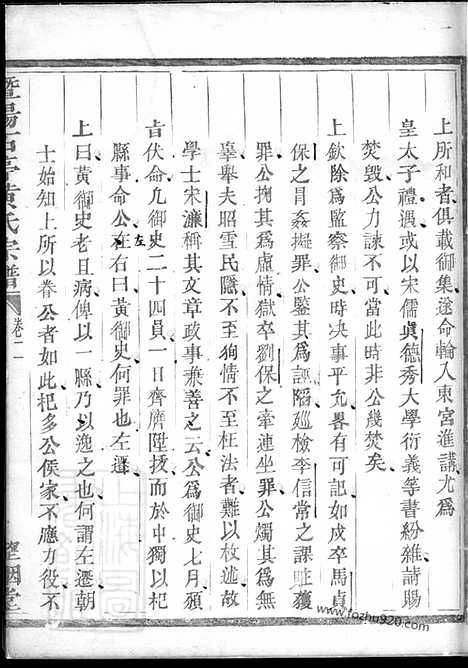 上所和者俱載御集遂命輪入東宮進講尤爲
皇太子禮遇或以宋儒眞德秀大學衍義等書紛雜請賜
焚毀公力諫不可當此時非公幾焚矣
上欽除爲監察御史時決事平允畧有可記如戍卒馬貞
保之冐姦擬罪公鑒其爲誣陷廵檢李信常之課賍獲
罪公掬其爲虛情獄卒劉保之牽連坐罪公燭其爲無
辜舉夫昭雪民隱不至狥情不至枉法者難以枚述故
學士宋濓稱其文章政事兼善之云公爲御史七月頒
㫖伏命凢御史二十四員一日齊膺陞拔而中獨以杞
縣事命公左右曰黃御史何罪也左遷
左
上曰黃御史老且病俾以一縣乃以逸之也何謂左遷朝
士始知上所以眷公者如此杞多公侯家不應力役不
暨陽 黃氏宗譜
卷二
堂
www.fozhu920.com